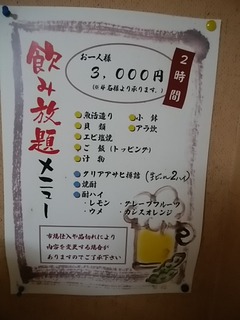 飲み放題メニュー
2時間
お一人様
3,000円
(※4名様より承ります。)
魚活造り
小鉢
貝類
アラ炊
エビ塩焼
ご飯(トッピング)
汁物
クリアアサヒ樽詰(生ビール2ハイ)
焼酎
酎ハイ
・レモン ・グレープフルーツ
・ウメ ・カシスオレンジ
市場仕入や品切れにより
内容を変更する場合が
ありますのでご了承下さい